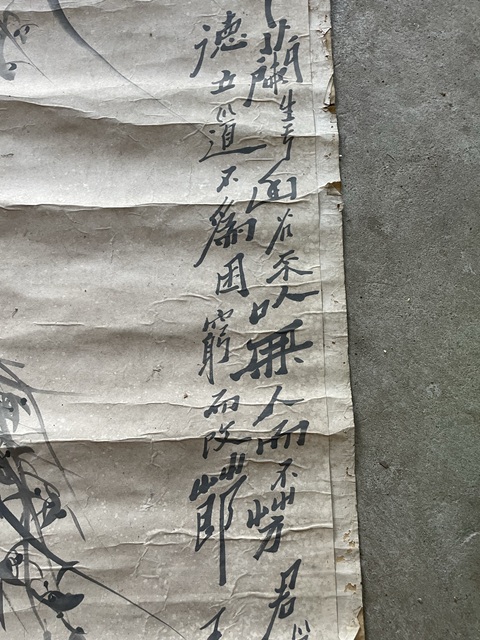 蘭生于幽谷不以無人而不芳君
德立道不為困窮而改節